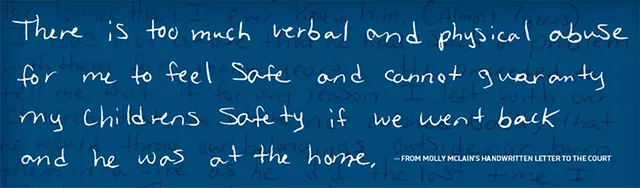 There is too much verbal and physical abuse
for me to feel safe and cannot guaranty
my childrens safety if we went back
and he was at the home. — FROM MOLLY MCLAIN'S HANDWRITTEN LETTER TO THE COURT